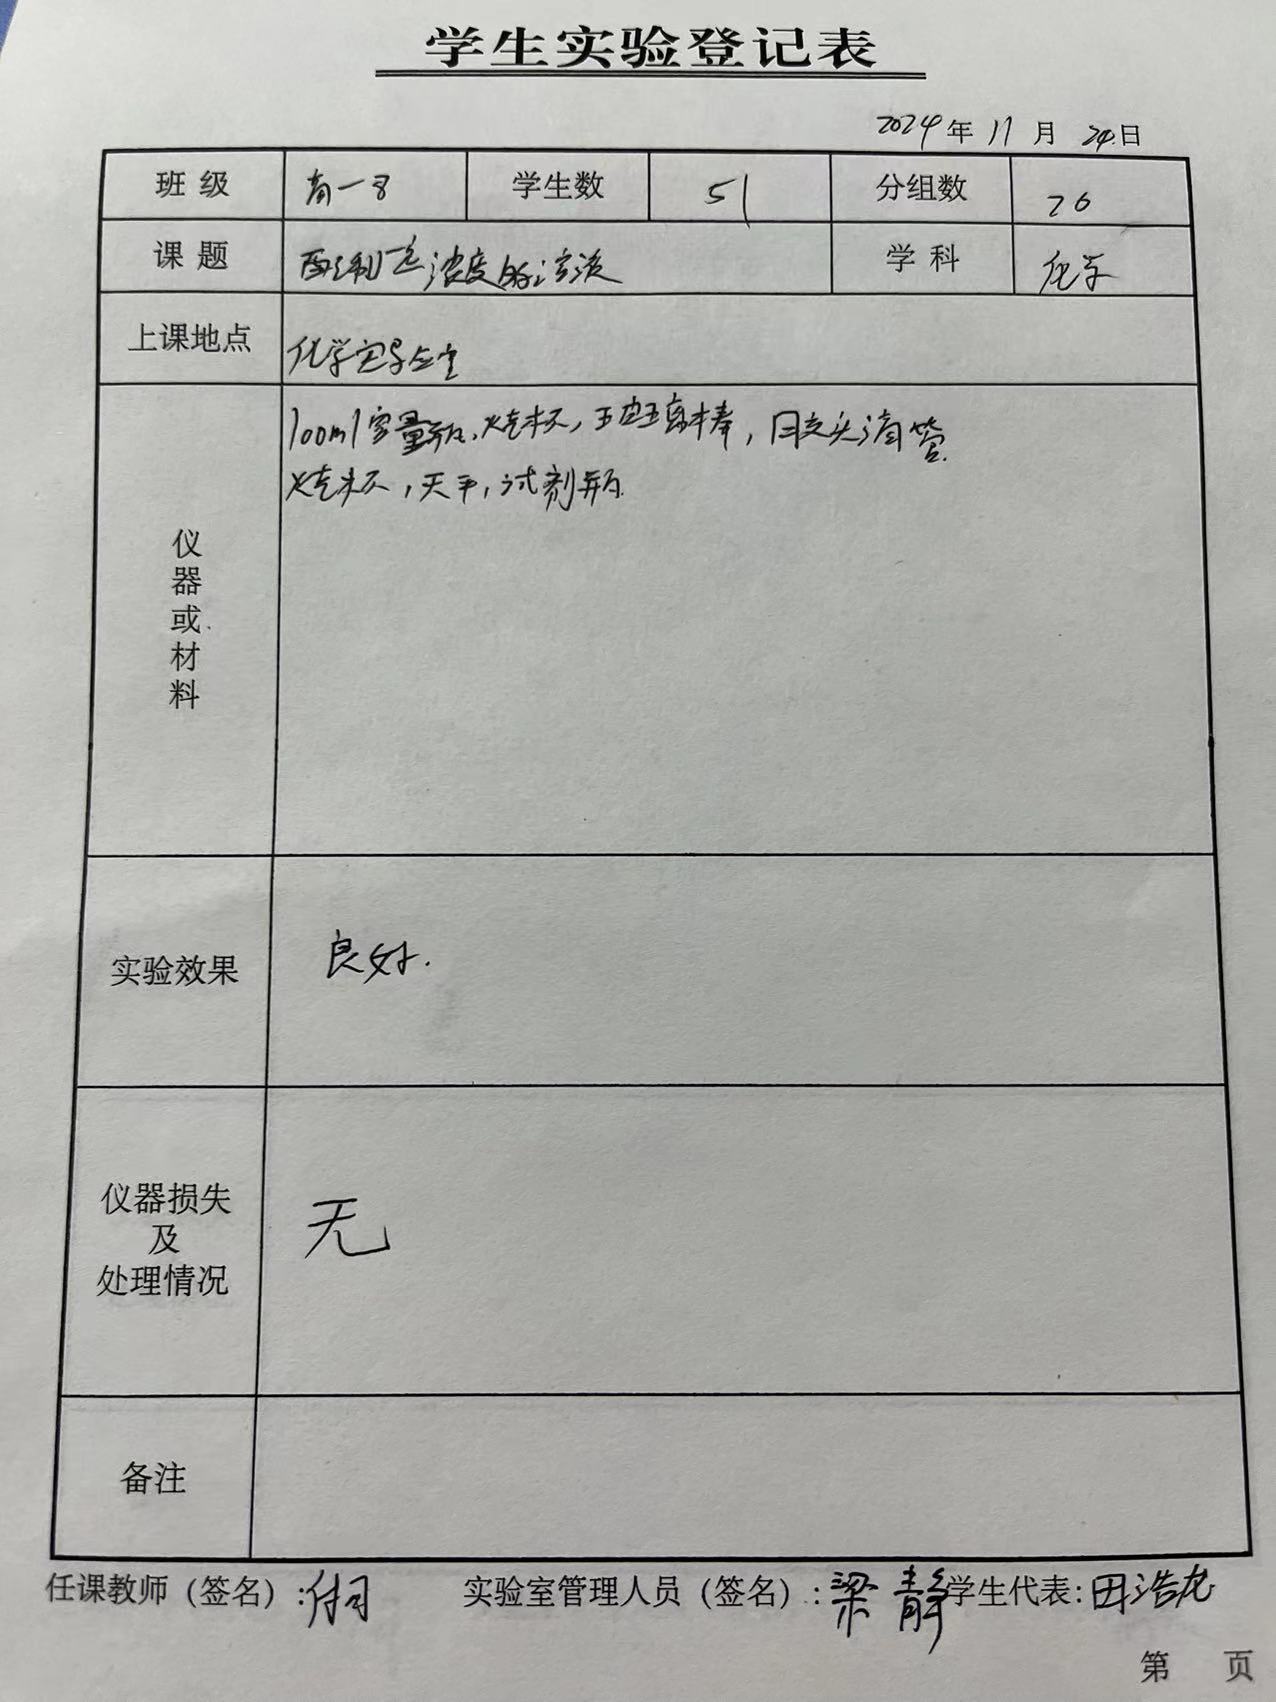 学生实验登记表
2024年11月24日
班级 高一8 学生数 51 分组数 26
课题 配制一定浓度的溶液 学科 化学
上课地点 化学实验室
100ml容量瓶,烧杯,玻璃棒,胶头滴管
烧杯,天平,试剂瓶.
仪器或材料
实验效果 良好.
仪器损失
及
处理情况
无
备注
任课教师(签名): 实验室管理人员(签名):梁静 学生代表:田浩龙
第 页